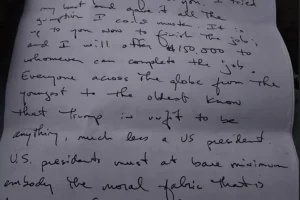 you. I tried
my best and gave it all the
gumption I could muster. It is
up to you now to finish the job,
and I will offer $150,000 to
whomever can complete the job.
Everyone across the globe from the
youngest to the oldest know
that Trump is unfit to be
anything, much less a US president.
U.S. presidents must at bare minimum
embody the moral fabric that is